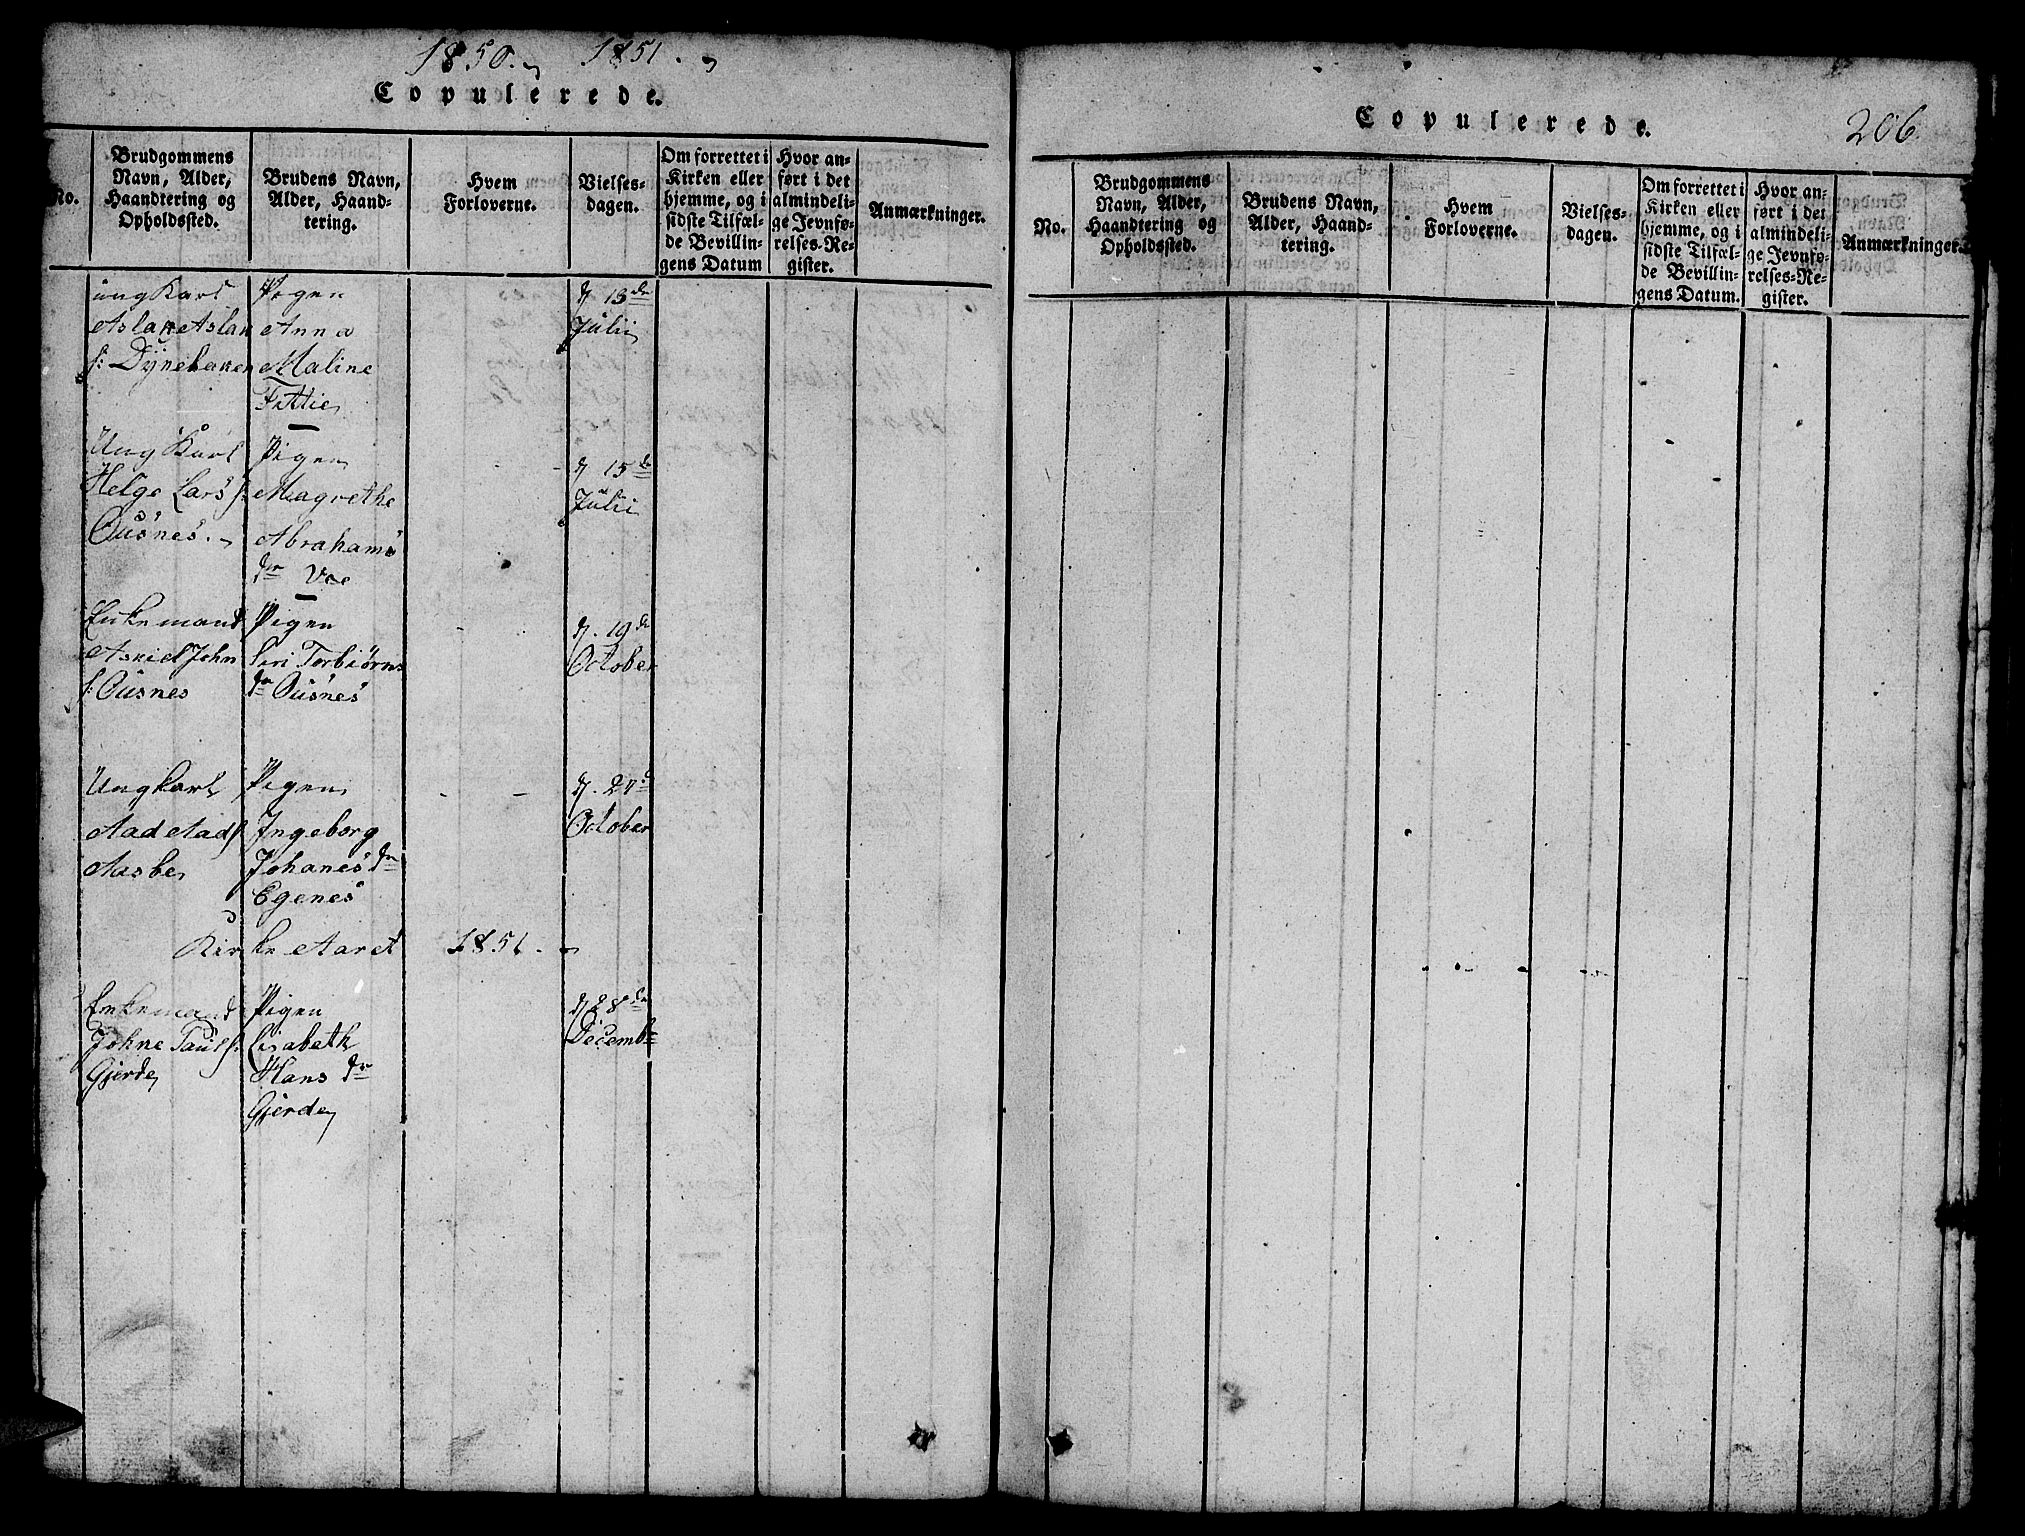 1850. 1851.
Copulerede.
No.
Brudgommens
Navn, Alder,
Haandtering og
Opholdssted.
Brudens Navn,
Alder, Haand-
tering.
Hvem
Forloverne.
Vielses-
dagen.
Om forrettet i
Kirken eller
hjemme, og i
sidste Tilfæl-
de Bevillin-
gens Datum
Hvor an-
ført i det
almindeli-
ge Jevnfø-
relses-Re-
gister.
Anmærkninger.
ung Karl
Aslak Aslak
s: Dynebaken
Pigen
Anna
Maline
d 13de
Julii
Ung Karl
Helge Lars s:
Ousnes.
Pigen
Magrethe
Abrahams
dr Voe
d 15de
Julii
Enkemand
Askiel John
s: Ousnes
Pigen
Siri Torbiørns
dr Ousnes
d. 19de
October
Ungkarl
Aad Aads
Aasbe
Pigen
Ingeborg
Johanes dr
Egenes
d. 27d
October
Kirke Aaret 1851.
Enkemand
Johne Paul s:
Gjerde
Pigen
Lisabeth
Hans dr
Gjerde
d 28de
Decembr
Copulerede.
206.
No.
Brudgommens
Navn, Alder,
Haandtering og
Opholdssted.
Brudens Navn,
Alder, Haand-
tering.
Hvem
Forloverne.
Vielses-
dagen.
Om forrettet i
Kirken eller
hjemme, og i
sidste Tilfæl-
de Bevillin-
gens Datum.
Hvor an-
ført i det
almindeli-
ge Jevnfø-
relses-Re-
gister.
Anmærkninger.